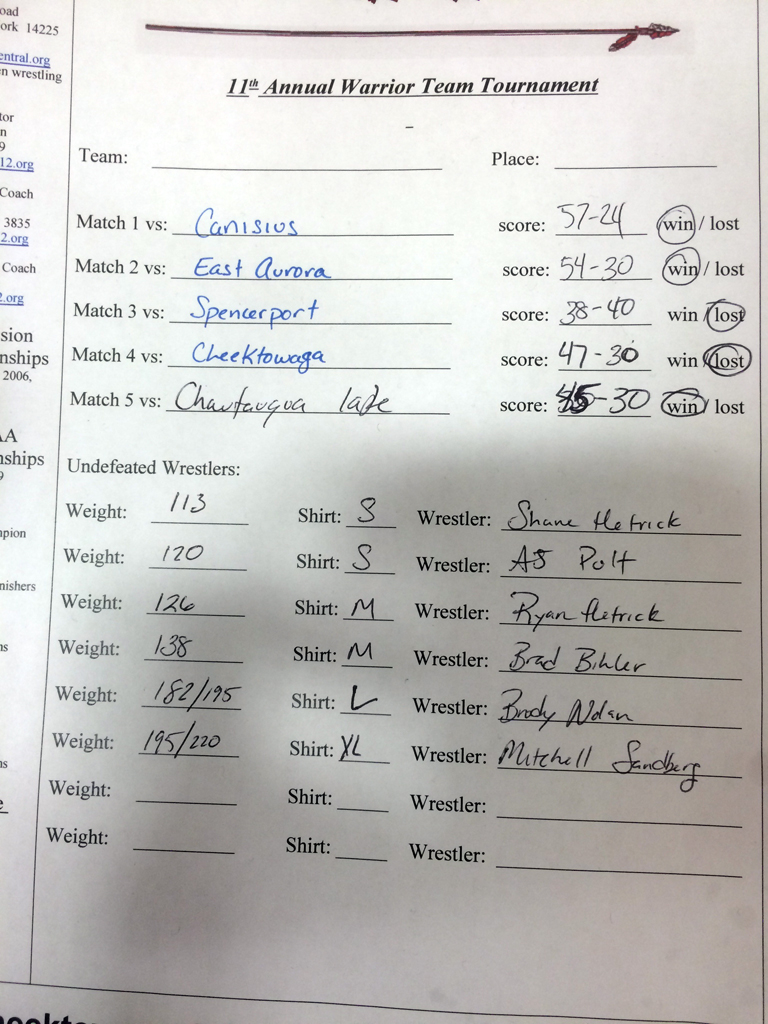 oad
ork 14225
entral.org
n wrestling
tor
n
9
12.org
Coach
3835
2.org
Coach
.org
sion
nships
2006,
AA
nships
9
npion
nishers
ns
ns
e
11th Annual Warrior Team Tournament
Team: Place:
Match 1 vs: Canisius score: 57-24 win / lost
Match 2 vs: East Aurora score: 54-30 win / lost
Match 3 vs: Spencerport score: 38-40 win / lost
Match 4 vs: Cheektowaga score: 47-30 win / lost
Match 5 vs: Chautauqua lake score: 45-30 win / lost
Undefeated Wrestlers:
Weight: 113 Shirt: S Wrestler: Shane Hetrick
Weight: 120 Shirt: S Wrestler: AJ Polt
Weight: 126 Shirt: M Wrestler: Ryan Hetrick
Weight: 138 Shirt: M Wrestler: Brad Bihler
Weight: 182/195 Shirt: L Wrestler: Brody Nolan
Weight: 195/220 Shirt: XL Wrestler: Mitchell Sandberg
Weight: Shirt: Wrestler:
Weight: Shirt: Wrestler: